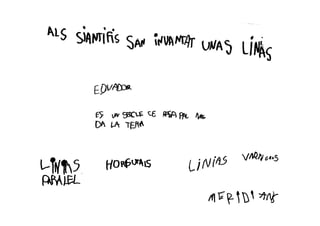 ALS SIANTIFIS SAN INVANTAT UNAS LINIAS
EDUADOR
ES UN SERCLE CE PAL
DA LA TERA
LINIAS HORISUTAIS LINIAS
PARALEL MERIDIANS